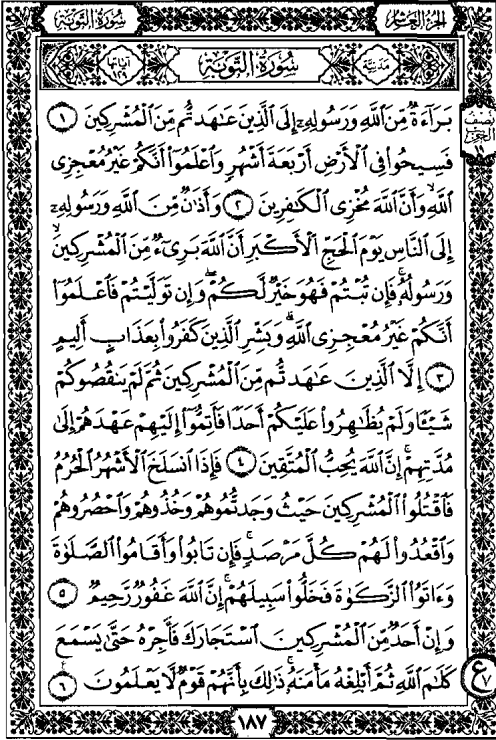 الجزء العاشر
سورة التوبة
مدنية
سورة التوبة
آياتها ١٢٩
نصف الحزب ١٩
بَرَآءَةٌ مِّنَ ٱللَّهِ وَرَسُولِهِۦٓ إِلَى ٱلَّذِينَ عَـٰهَدتُّم مِّنَ ٱلْمُشْرِكِينَ ١
فَسِيحُوا۟ فِى ٱلْأَرْضِ أَرْبَعَةَ أَشْهُرٍ وَٱعْلَمُوٓا۟ أَنَّكُمْ غَيْرُ مُعْجِزِى
ٱللَّهِ ۙ وَأَنَّ ٱللَّهَ مُخْزِى ٱلْكَـٰفِرِينَ ٢ وَأَذَٰنٌ مِّنَ ٱللَّهِ وَرَسُولِهِۦٓ
إِلَى ٱلنَّاسِ يَوْمَ ٱلْحَجِّ ٱلْأَكْبَرِ أَنَّ ٱللَّهَ بَرِىٓءٌ مِّنَ ٱلْمُشْرِكِينَ ۙ
وَرَسُولُهُۥ ۚ فَإِن تُبْتُمْ فَهُوَ خَيْرٌ لَّكُمْ ۖ وَإِن تَوَلَّيْتُمْ فَٱعْلَمُوٓا۟
أَنَّكُمْ غَيْرُ مُعْجِزِى ٱللَّهِ ۗ وَبَشِّرِ ٱلَّذِينَ كَفَرُوا۟ بِعَذَابٍ أَلِيمٍ
٣ إِلَّا ٱلَّذِينَ عَـٰهَدتُّم مِّنَ ٱلْمُشْرِكِينَ ثُمَّ لَمْ يَنقُصُوكُمْ
شَيْـًٔا وَلَمْ يُظَـٰهِرُوا۟ عَلَيْكُمْ أَحَدًا فَأَتِمُّوٓا۟ إِلَيْهِمْ عَهْدَهُمْ إِلَىٰ
مُدَّتِهِمْ ۚ إِنَّ ٱللَّهَ يُحِبُّ ٱلْمُتَّقِينَ ٤ فَإِذَا ٱنسَلَخَ ٱلْأَشْهُرُ ٱلْحُرُمُ
فَٱقْتُلُوا۟ ٱلْمُشْرِكِينَ حَيْثُ وَجَدتُّمُوهُمْ وَخُذُوهُمْ وَٱحْصُرُوهُمْ
وَٱقْعُدُوا۟ لَهُمْ كُلَّ مَرْصَدٍ ۚ فَإِن تَابُوا۟ وَأَقَامُوا۟ ٱلصَّلَوٰةَ
وَءَاتَوُا۟ ٱلزَّكَوٰةَ فَخَلُّوا۟ سَبِيلَهُمْ ۚ إِنَّ ٱللَّهَ غَفُورٌ رَّحِيمٌ ٥
وَإِنْ أَحَدٌ مِّنَ ٱلْمُشْرِكِينَ ٱسْتَجَارَكَ فَأَجِرْهُ حَتَّىٰ يَسْمَعَ
كَلَـٰمَ ٱللَّهِ ثُمَّ أَبْلِغْهُ مَأْمَنَهُۥ ۚ ذَٰلِكَ بِأَنَّهُمْ قَوْمٌ لَّا يَعْلَمُونَ ٦
ع ٧
١٨٧